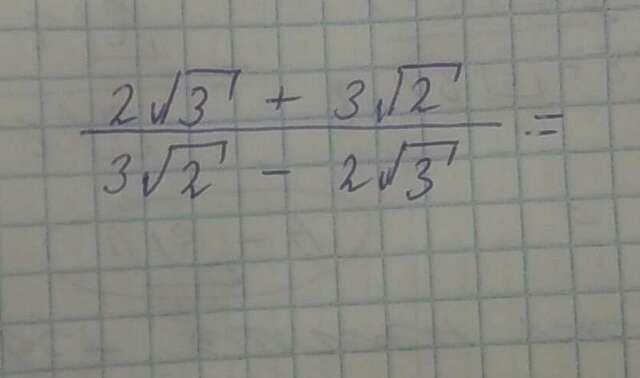 2√3 + 3√2
3√2 - 2√3 =